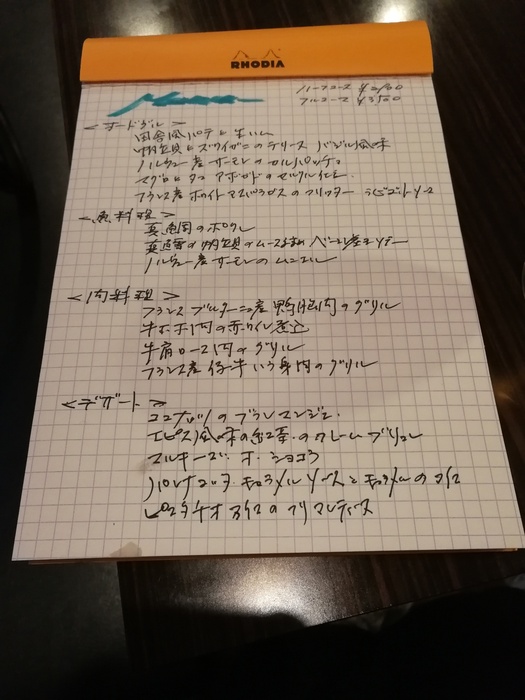 RHODIA
Menu
ハーフコース ¥2,800
フルコース ¥3,500
<オードヴル>
田舎風パテと生ハム
帆立貝とズワイガニのテリーヌ バジル風味
ノルウェー産サーモンのカルパッチョ
マグロとアボカドのセルクル仕立
フランス産ホワイトアスパラガスのフリッター ラビゴットソース
<魚料理>
真鯛のポワレ
帆立貝のムース
ノルウェー産サーモンのムニエル
<肉料理>
フランス ブルターニュ産 鴨胸肉のグリル
牛ホホ肉の赤ワイン煮込
牛肩ロース肉のグリル
フランス産仔牛 いちぼ肉のグリル
<デザート>
ココナッツのブランマンジェ
エピス風味の紅茶のクレームブリュレ
マルキーズ・オ・ショコラ
パンナコッタ キャラメルソースとキャラメルのアイス
ピスタチオアイスのフリアンティーヌ